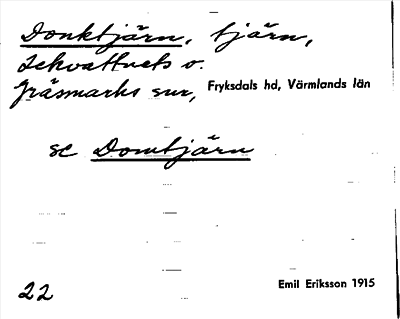 Donktjärn, tjärn,
Lekvattnets o.
Gräsmarks snr, Fryksdals hd, Värmlands län
se Domtjärn
22 Emil Eriksson 1915